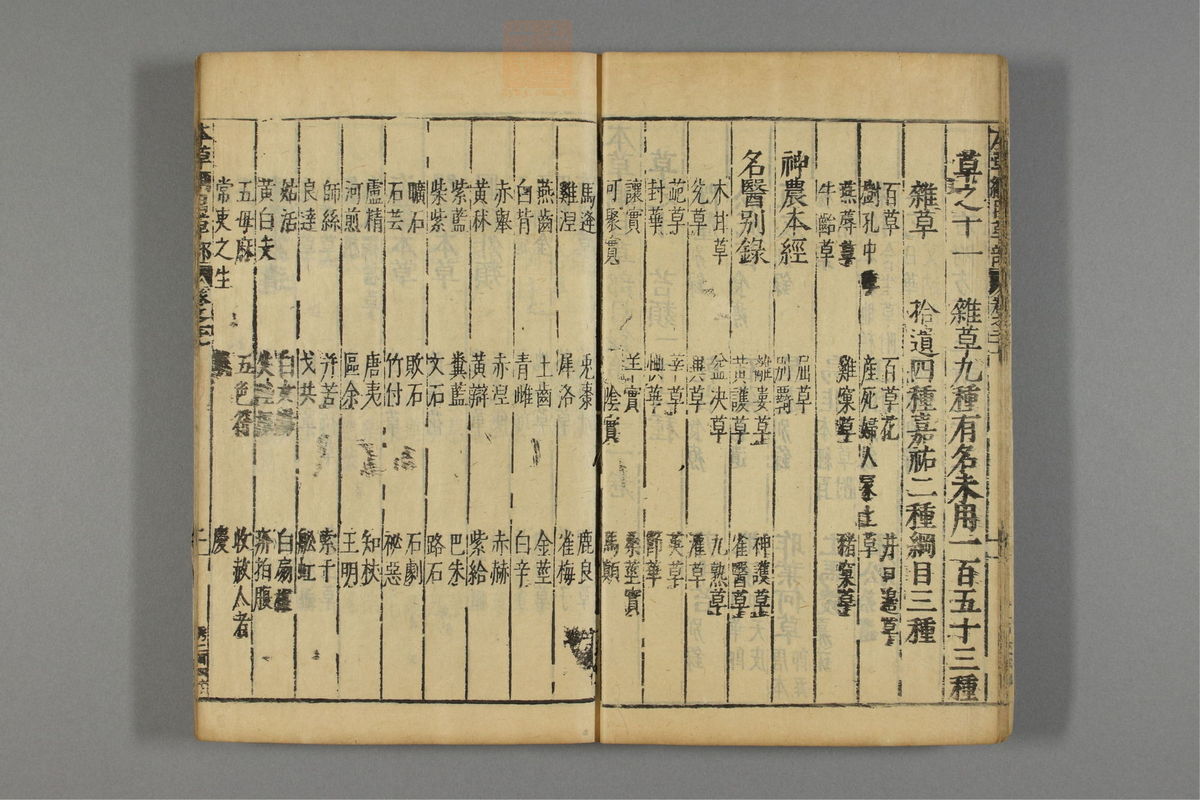 草之十一 雜草九種有名未用一百五十三種
雜草 拾遺四種嘉祐二種綱目三種
百草 百草花 井口邊草
樹孔中草 産死婦人冢上草
燕蓐草 雞窠草 豬窠草
牛齝草
神農本經 屈草 別羇
名醫別錄 離婁草 神護草
黃護草 雀醫草
木甘草 益決草 九熟草
兌草 異草 灌草
䓃草 莘草 英草
封華 節華
讓實 羊實 桑莖實
可聚實 陰實 馬顛
馬逢 兔棗 鹿良
雞涅 犀洛 雀梅
燕齒 土齒 金莖
白背 青雌 白辛
赤舉 赤涅 赤赫
黃秫 黃辯 紫給
紫藍 糞藍 巴朱
柴紫 文石 路石
曠石 敗石 石劇
石芸 竹付 祕惡
盧精 唐夷 知杖
河煎 區余 王明
師絲 并苦 索干
良達 戈共 船虹
姑活 白女腸 白扇根
黃白支 疥拍腹
五母麻 五色符 救赦人者
常吏之生 慶